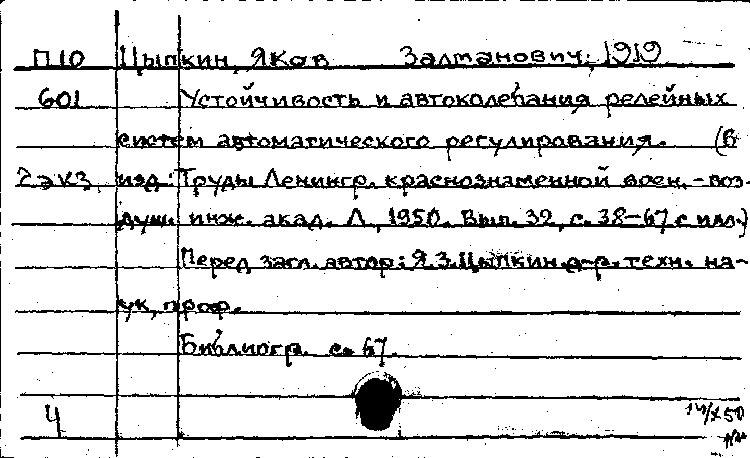 П10 Цыпкин, Яков Залманович, 1919
601 Устойчивость и автоколебания релейных
систем автоматического регулирования. (В
2 экз. изд: Труды Ленингр. краснознаменной воен.-воз-
душ. инж. акад. Л, 1950. Вып. 32, с. 38-67 с илл.)
Перед загл. автор: Я.З.Цыпкин д-р. техн. на-
ук, проф.
Библиогр. с. 67.
Ч 14/X 50